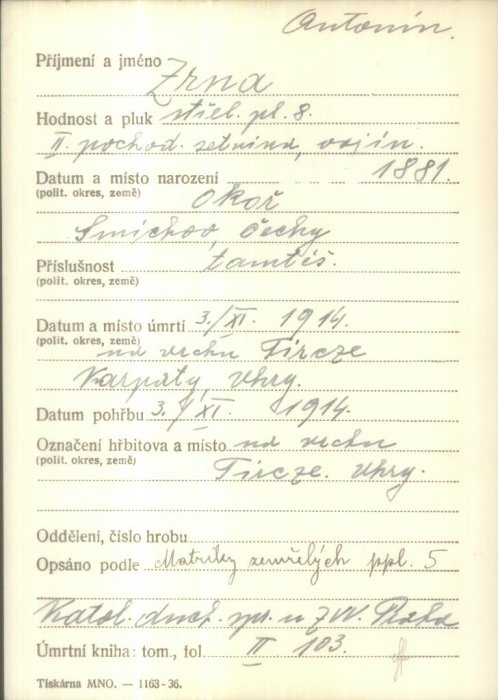 Antonín.
Příjmení a jméno Zrna
Hodnost a pluk střel. pl. 8.
II. pochod. setnina, vojín.
Datum a místo narození 1881.
(polit. okres, země) Okoř
Smíchov, Čechy
Příslušnost tamtéž.
(polit. okres, země)
Datum a místo úmrtí 3./XI. 1914.
(polit. okres, země) na vrchu Tircze
Karpaty, Uhry.
Datum pohřbu 3./XI. 1914.
Označení hřbitova a místo na vrchu
(polit. okres, země) Tircze. Uhry.
Oddělení, číslo hrobu
Opsáno podle Matriky zemřelých ppl. 5
Katol. duch. spr. u ZVV. Praha
Úmrtní kniha: tom., fol II 103.
Tiskárna MNO. — 1163-36.